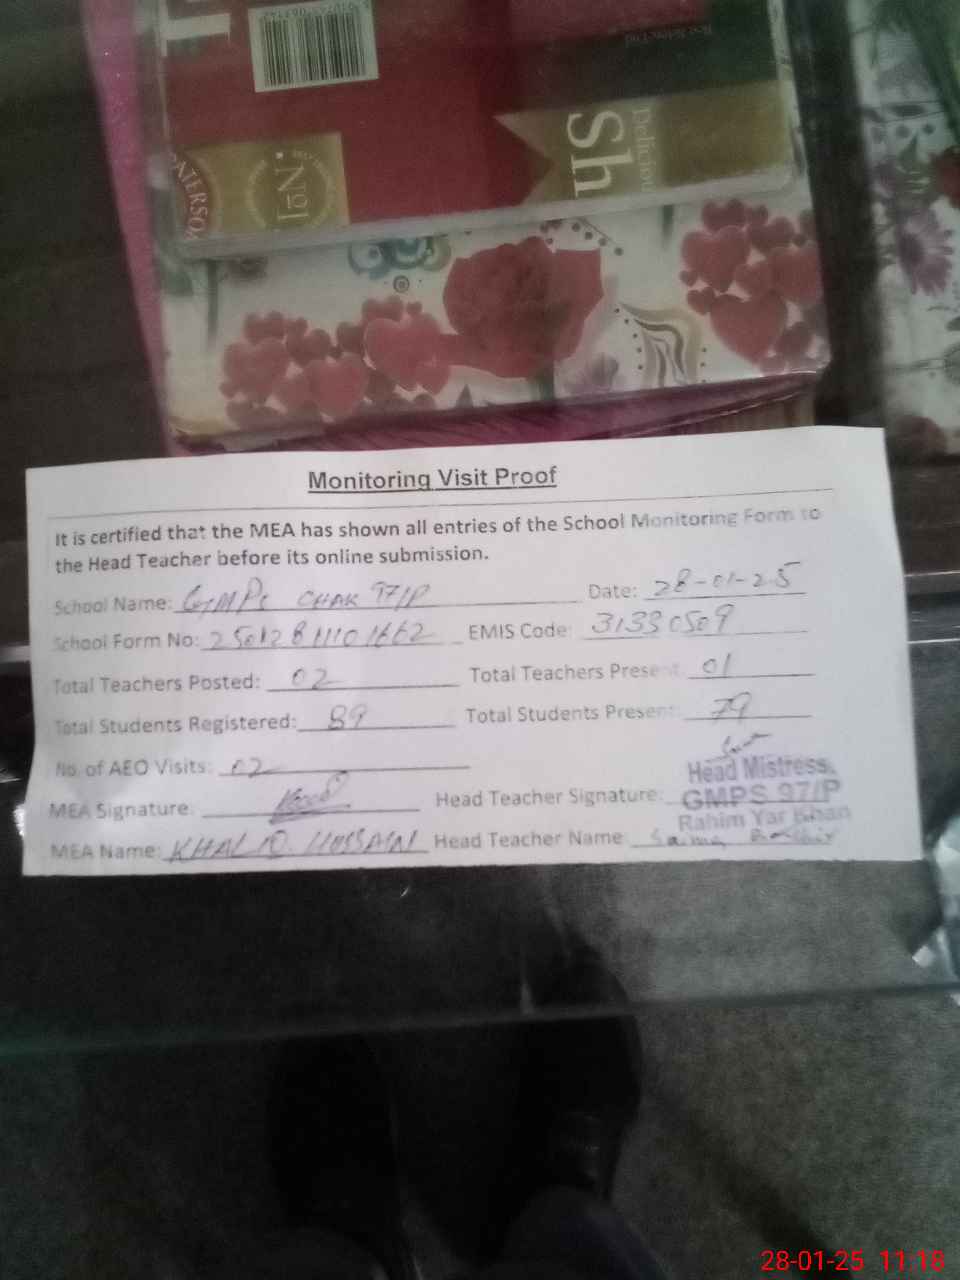 PATERSON
No1
Delicious
Sh
Monitoring Visit Proof
It is certified that the MEA has shown all entries of the School Monitoring Form to
the Head Teacher before its online submission.
School Name: GMPS CHAK 97/P Date: 28-01-25
School Form No: EMIS Code: 31330509
Total Teachers Posted: 02 Total Teachers Present: 01
Total Students Registered: 89 Total Students Present: 79
No. of AEO Visits: 02
MEA Signature: Head Teacher Signature:
Head Mistress
GMPS 97/P
Rahim Yar Khan
MEA Name: KHALID HUSSAIN Head Teacher Name: Saima
28-01-25 11:18